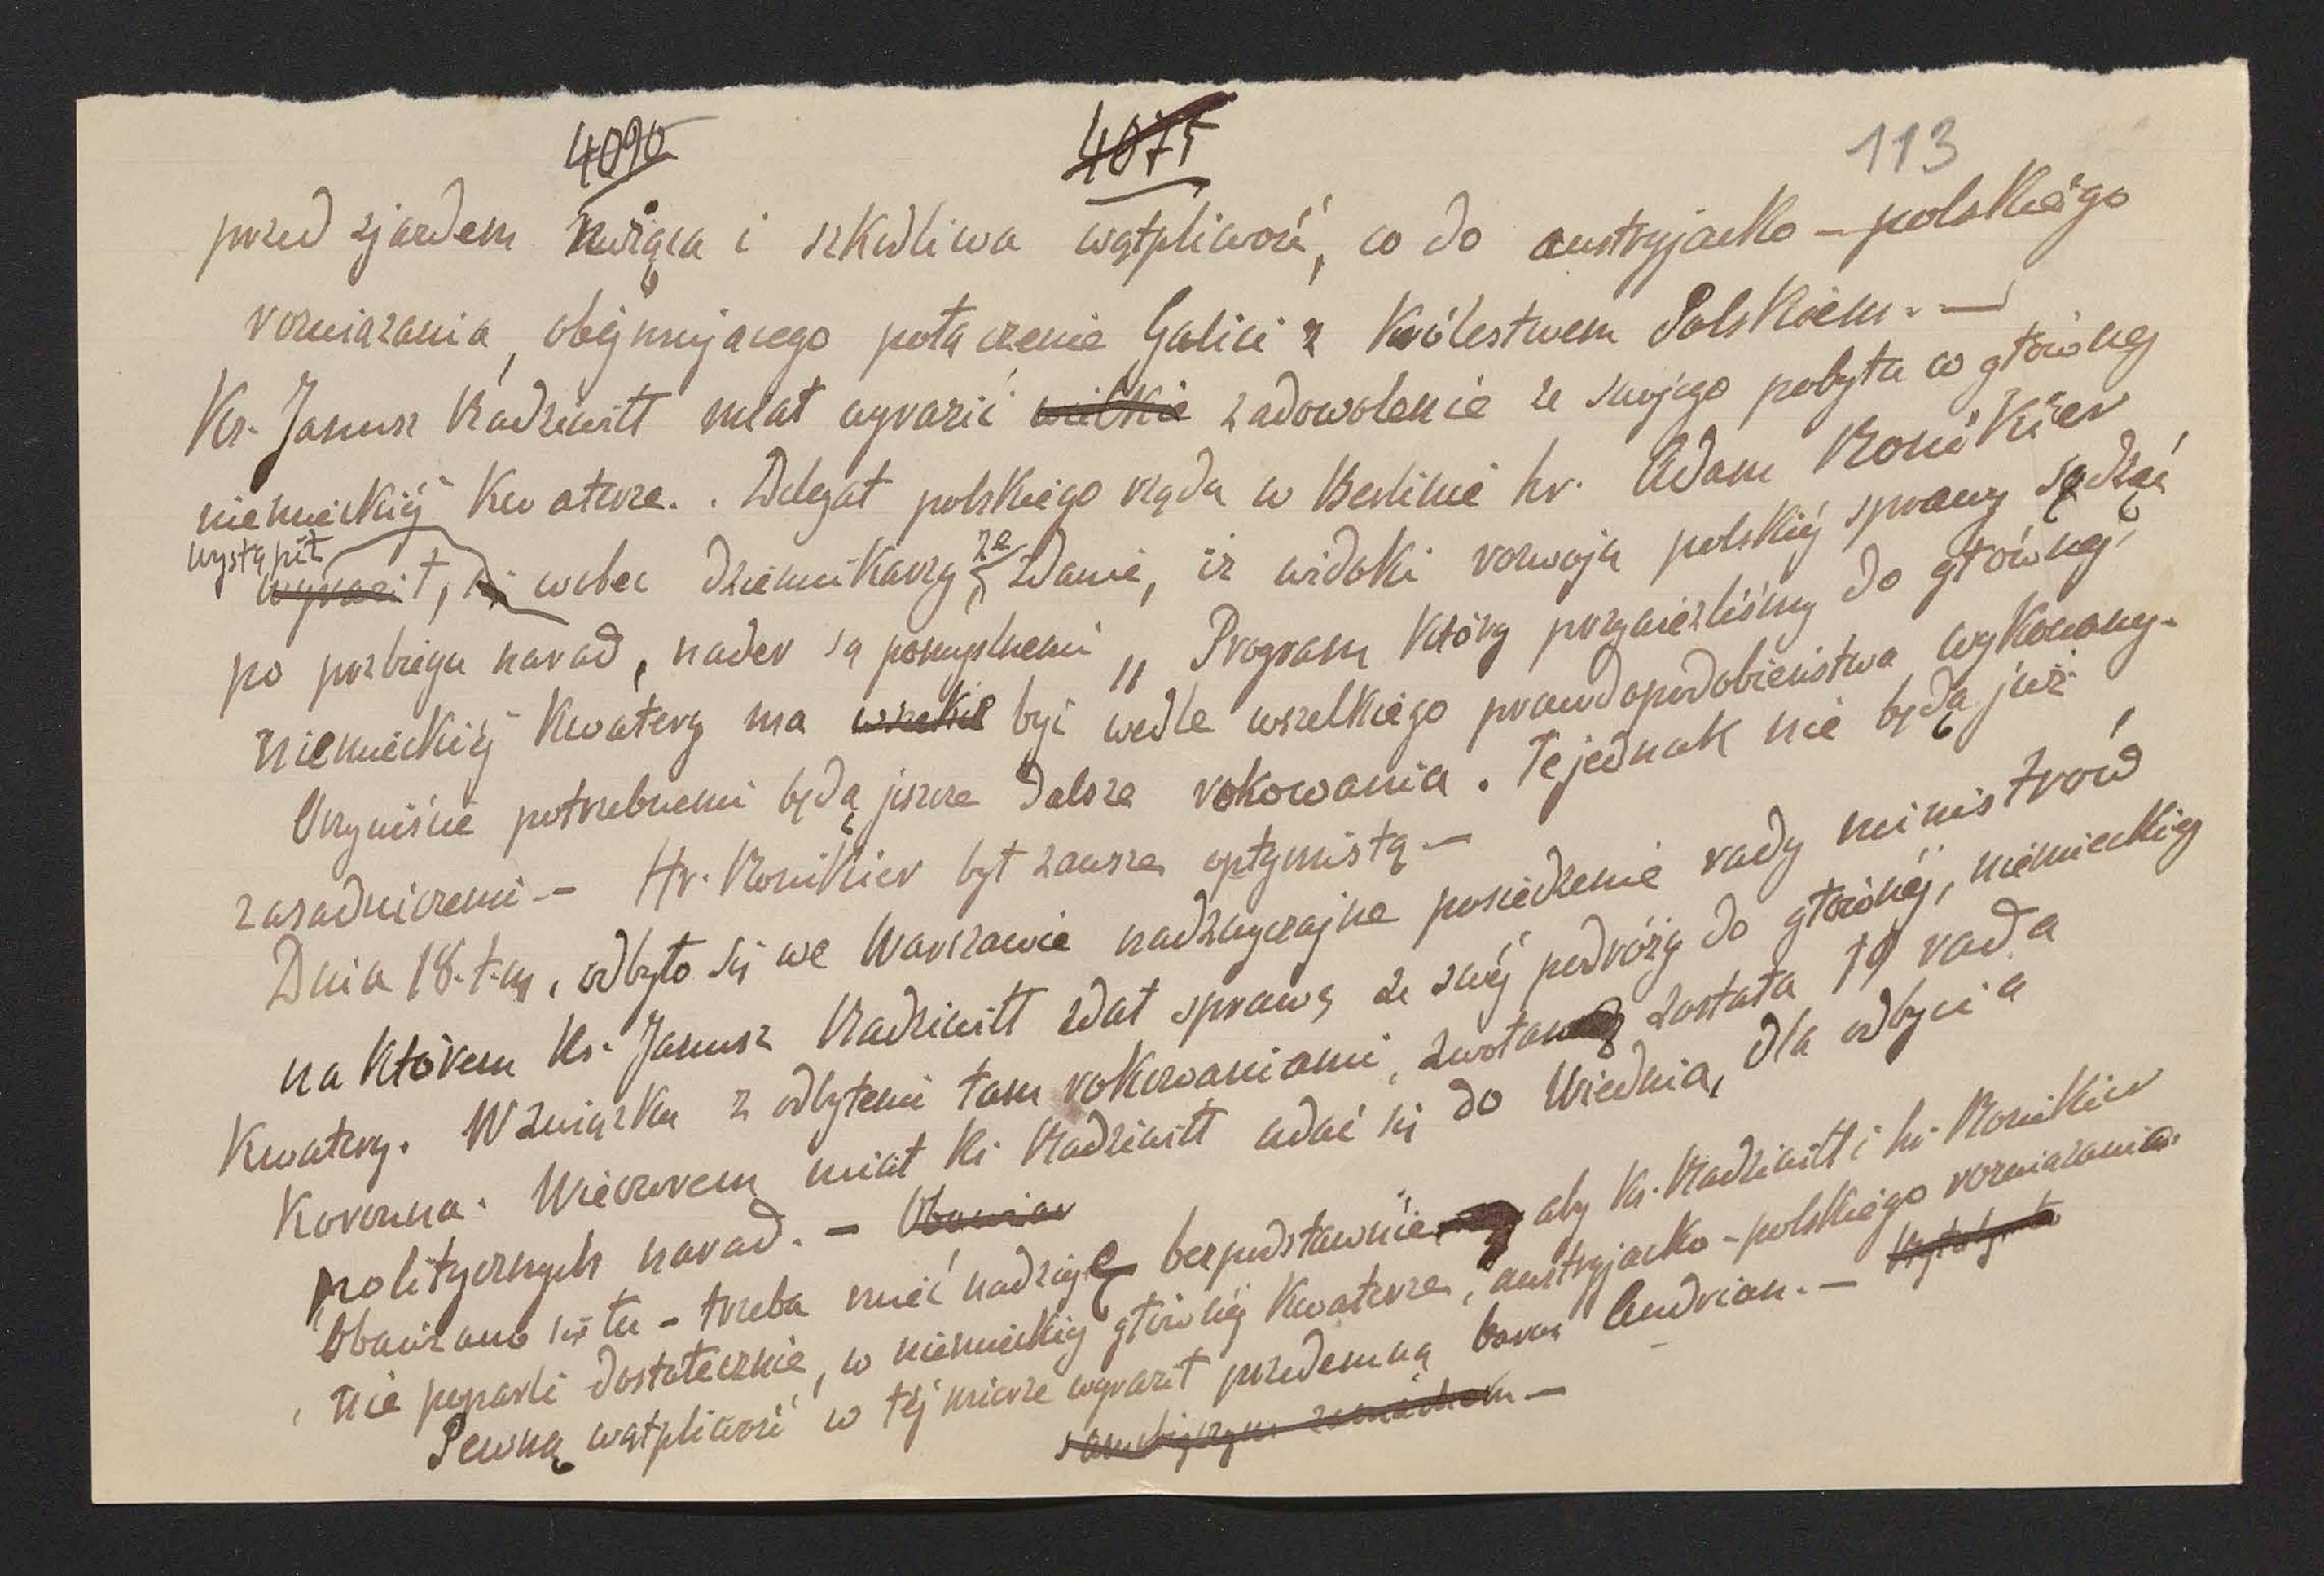 4090 4075 113
przed zjazdem rwiąca i szkodliwa wątpliwość, co do austryjacko - polskiego
rozwiazania, obejmujacego połączenie Galicii z Królestwem Polskiem. —
Ks. Janusz Radziwiłł miał wyrazić wielkie zadowolenie ze swojego pobytu w głównej
niemieckiej Kwaterze. . Delegat polskiego rządu w Berlinie hr. Adam Ronikier
wystąpił
wyraził, wobec dziennikarzy ze zdanie, iż widoki rozwoju polskiej sprawy sądząc
po przbiegu narad, nader są pomyslnemi „ Program Który przywiezliśmy do głównej
niemieckiej Kwatery ma wszelkie być wedle wszelkiego prawdopodobieństwa wykonany.
Oczywiście potrzebnemi będą jeszcze dalsze rokowania. Te jednak nie będą już
zasadniczemi. — Hr. Ronikier był zawsze optymistą —
Dnia 18. t. m. odbyło się we Warszawie nadzwyczajne posiedzenie rady ministrów
na Którem Ks. Janusz Radziwiłł zdał sprawę ze swej podróży do głównej, niemieckiej
Kwatery. W związku z odbytemi tam rokowaniami, zwołaną została 19 rada
Koronna. Wieczorem miał Ks. Radziwiłł udać się do Wiednia, dla odbycia
politycznych narad. — Obawiar
Obawiano się tu - trzeba mieć nadzieję bezpodstawnie aby Ks. Radziwiłł i hr. Ronikier
nie poparli dostatecznie, w niemieckiej głównej Kwaterze, austryjacko - polskiego rozwiazania.
Pewną wątpliwość w tej mierze wyraził przedemną baron Andrian. —